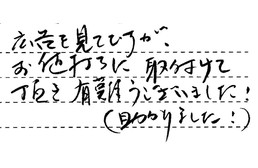 広告を見てですが、
お値打ちに取付けて
丁頂き有難うございました!
(助かりました!)